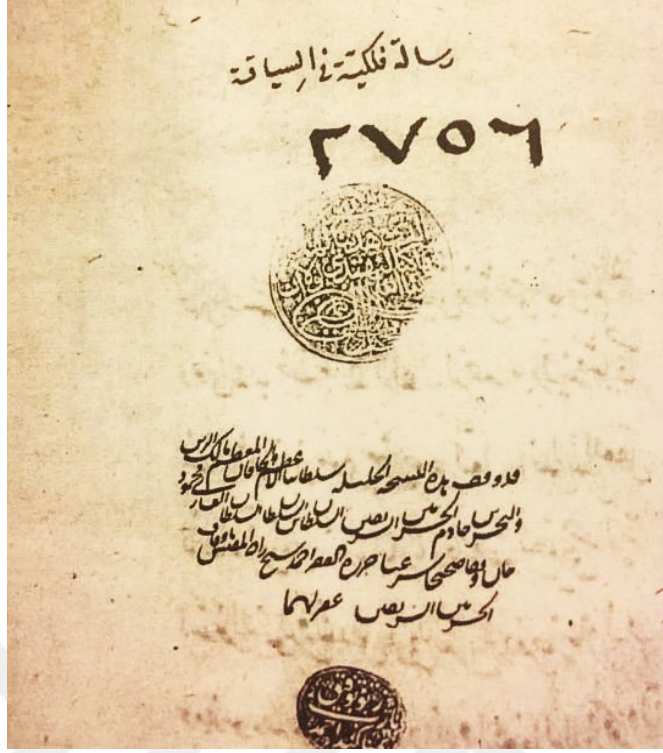 رسالة فلكية في السياقة
٢٧٥٦
قد وقف هذه النسخة الجليلة سلطاننا الاعظم والخاقان المعظم مالك البرين
والبحرين خادم الحرمين الشريفين السلطان بن السلطان السلطان الغازي محمود
خان وقفا صحيحا شرعيا حرره الفقير احمد شيخ زاده المفتش باوقاف
الحرمين الشريفين غفر لهما